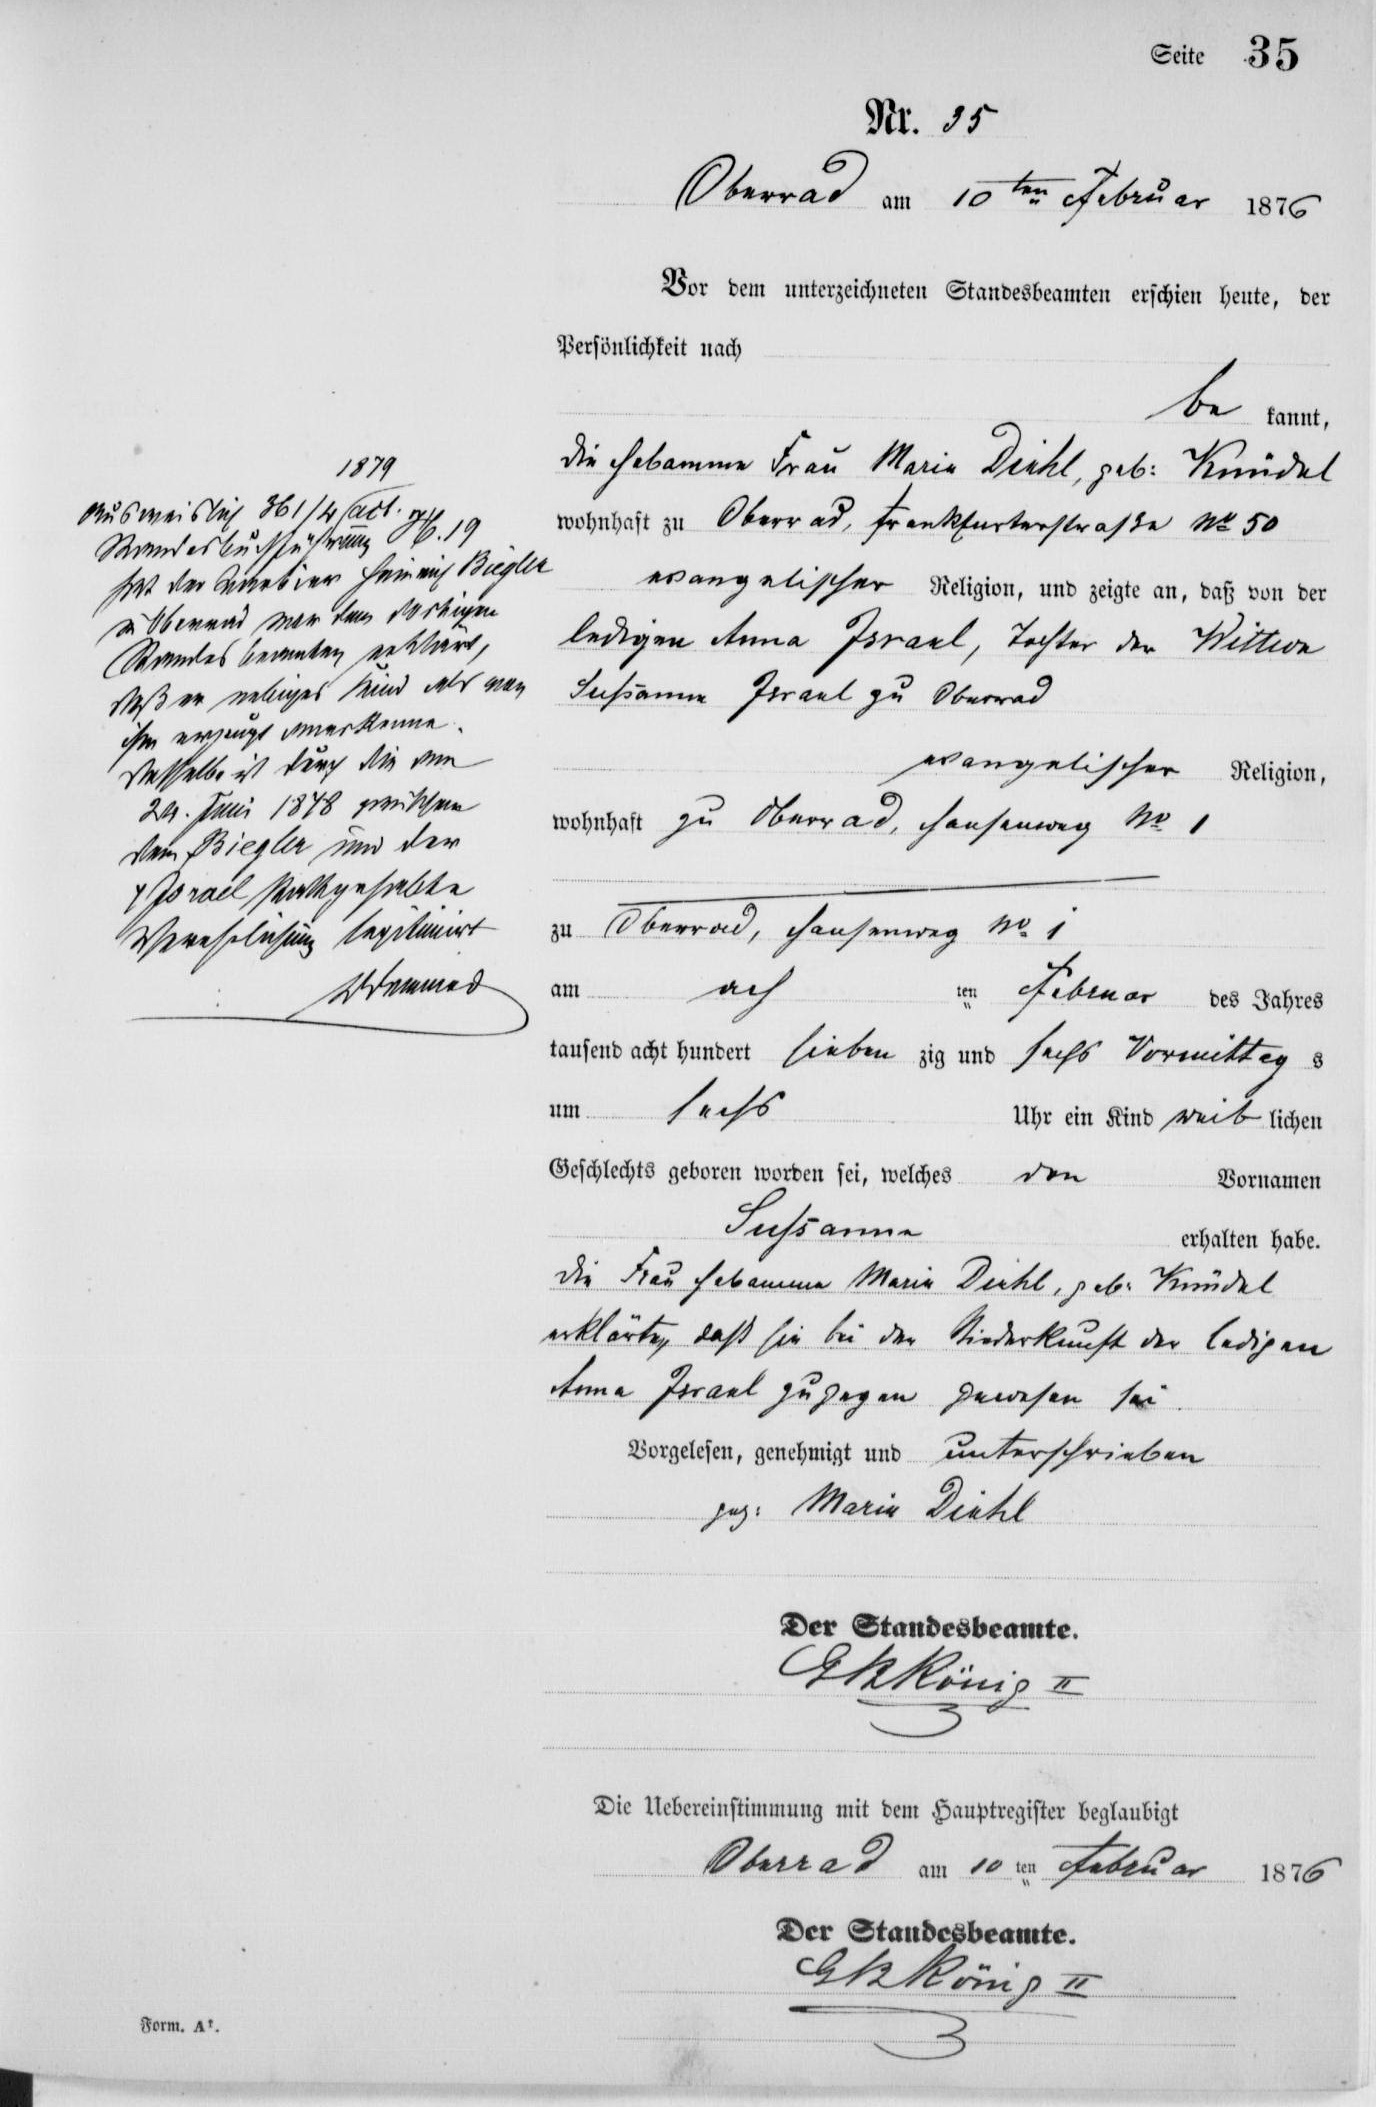 Seite 35
Nr. 35
Oberrad am 10ten Februar 1876
Vor dem unterzeichneten Standesbeamten erschien heute, der
Persönlichkeit nach
be kannt,
die Hebamme Frau Marie Diehl, geb: Knüdel
wohnhaft zu Oberrad, Frankfurterstraße No 50
evangelischer Religion, und zeigte an, daß von der
ledigen Anna Israel, Tochter der Wittwe
Sussanna Israel zu Oberrad
evangelischer Religion,
wohnhaft zu Oberrad, Hansenweg No 1
zu Oberrad, Hansenweg No 1
am ach ten Februar des Jahres
tausend acht hundert sieben zig und sechs Vormittag s
um sechs Uhr ein Kind weib lichen
Geschlechts geboren worden sei, welches den Vornamen
Sussanna erhalten habe.
die Frau Hebamme Marie Diehl, geb: Knüdel
erklärte, daß sie bei der Niederkunft der ledigen
Anna Israel zugegen gewesen sei.
Vorgelesen, genehmigt und unterschrieben
gez: Marie Diehl
Der Standesbeamte.
König II
Die Uebereinstimmung mit dem Hauptregister beglaubigt
Oberrad am 10 ten Februar 1876
Der Standesbeamte.
König II
1879
Ausweislich 361/4 act. 19
Standesbuchführung
hat der Heinrich Biegler
zu Oberrad vor dem dortigen
Standesbeamten erklärt,
daß er nebiges Kind als von
ihm erzeugt anerkenne.
Dasselbe ist durch die am
24. Juni 1878 zwischen
dem Biegler und der
Israel stattgehabte
Verehelichung legitimirt
Form. A¹.